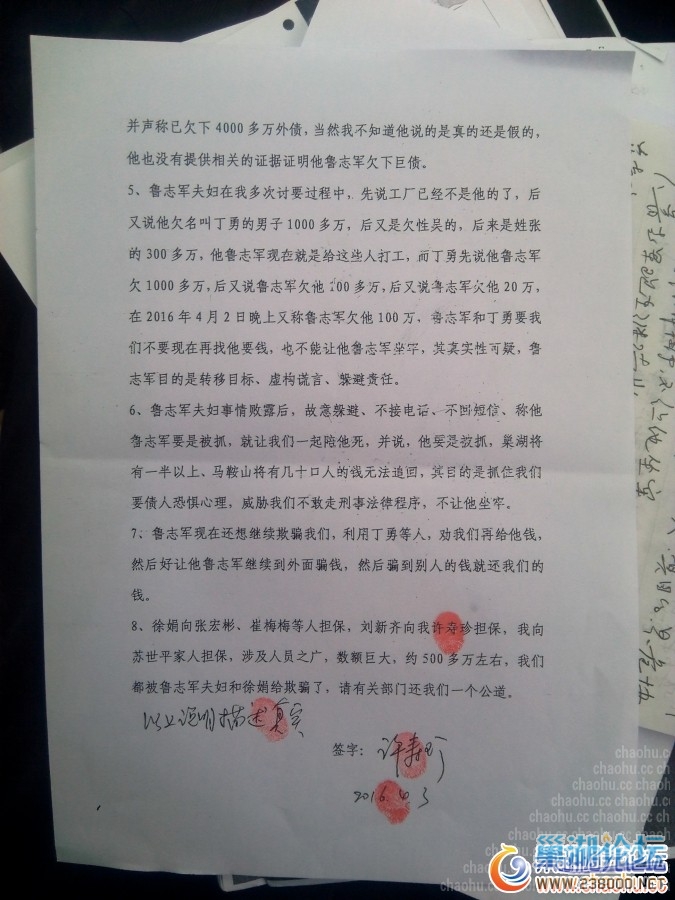 并声称已欠下 4000 多万外债，当然我不知道他说的是真的还是假的，
他也没有提供相关的证据证明他鲁志军欠下巨债。
5、鲁志军夫妇在我多次讨要过程中，先说工厂已经不是他的了，后
又说他欠名叫丁勇的男子 1000 多万，后又是欠性吴的，后来是姓张
的 300 多万，他鲁志军现在就是给这些人打工，而丁勇先说他鲁志军
欠 1000 多万，后又说鲁志军欠他 200 多万，后又说鲁志军欠他 20 万，
在 2016 年 4 月 2 日晚上又称鲁志军欠他 100 万、鲁志军和丁勇要我
们不要现在再找他要钱，也不能让他鲁志军坐牢，其真实性可疑，鲁
志军目的是转移目标、虚构谎言、躲避责任。
6、鲁志军夫妇事情败露后，故意躲避、不接电话、不回短信、称他
鲁志军要是被抓，就让我们一起陪他死，并说，他要是被抓，巢湖将
有一半以上、马鞍山将有几十口人的钱无法追回，其目的是抓住我们
要债人恐惧心理，威胁我们不敢走刑事法律程序，不让他坐牢。
7、鲁志军现在还想继续欺骗我们，利用丁勇等人，劝我们再给他钱，
然后好让他鲁志军继续到外面骗钱，然后骗到别人的钱就还我们的
钱。
8、徐娟向张宏彬、崔梅梅等人担保，刘新齐向我许寿珍担保，我向
苏世平家人担保，涉及人员之广，数额巨大，约 500 多万左右，我们
都被鲁志军夫妇和徐娟给欺骗了，请有关部门还我们一个公道。
以上说明描述真实
签字：许寿珍
2016.4.3
chaohu.cc
巢湖论坛
www.238000.NET